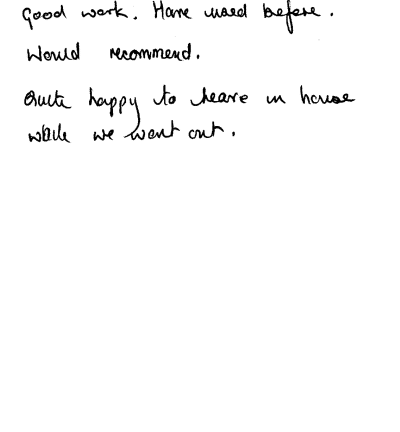 Good work. Have used before.
Would recommend.
Quite happy to leave in house
while we went out.